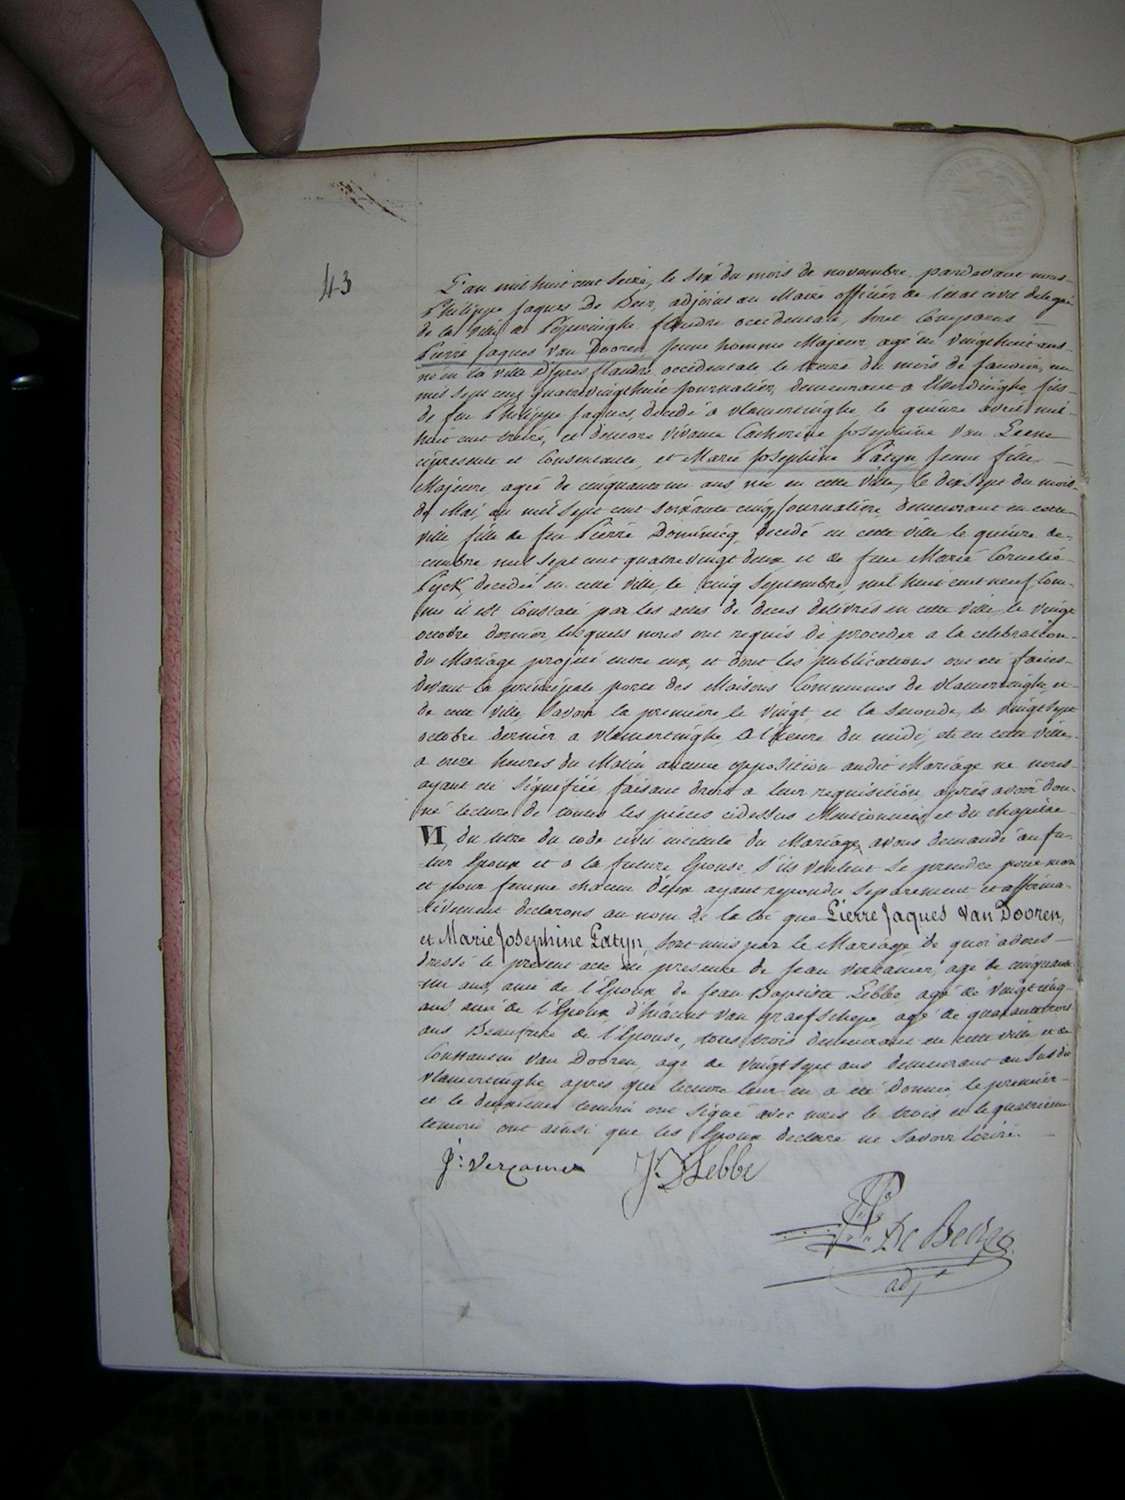 43
L'an mil huit cent seize, le six du mois de novembre pardevant nous
Philippe Jaques De Beir, adjoint au Maire officier de l'etat civil delegué
de la ville de Poperinghe flandre occidentale, sont Comparus
Pierre Jaques van Dooren Jeune homme Majeur agé de vingthuit ans
né en la ville d'ypres flandre occidentale le treize du mois de Janvier, an
mil sept cent quatre vingthuit Journalier, demeurant a Elverdinghe, fils
de feu Philippe Jaques, decedé a vlamertinghe le quinze avril mil
huit cent treize, et d'encore vivante Catherine Josephine van
cipresente et Consentante, et Marie Josephine Patyn Jeune fille
Majeure agée de cinquante un ans née en cette ville, le dix sept du mois
de Mai, an mil sept cent soixante cinq Journalière, demeurant en cette
ville fille de feu Pierre Dominicq, decedé en cette ville le quinze de-
cembre mil sept cent quatre vingt deux et de feue Marie Cornelie
decedée en cette ville, le cinq Septembre, mil huit cent neuf Com-
me il est Constaté par les actes de deces delivrés en cette ville le vingt
octobre dernier, lesquels nous ont requis de proceder a la celebration
du Mariage projeté entre eux, et dont les publications ont été faites
devant la principale porte des Maisons Communes de vlamertinghe et
de cette ville, Savoir la première le vingt et la Seconde le vingt sept
octobre dernier a vlamertinghe a l'heure du midi, et en cette ville
a onze heures du Matin aucune opposition audit Mariage ne nous
ayant été signifiée faisant droit a leur requisition, après avoir don-
né lecture de toutes les pièces cidessus Mentionnées et du chapitre
VI du titre du code civil intitulé du Mariage, avons demandé au fu-
tur Epoux et a la future Epouse, s'ils veulent se prendre pour mari
et pour femme chacun d'eux ayant repondu separement et affirma-
tivement declarons au nom de la loi que Pierre Jaques Van Dooren,
et Marie Josephine Patyn, sont unis par le Mariage, de quoi avons
dressé le présent acte en presence de Jean Vercamer, agé de cinquante
un ans, ami de l'Epoux de Jean Baptiste Lebbe agé de vingt cinq
ans ami de l'Epoux d'hiacint van Graefschepe, agé de quarante trois
ans Beaufrere de l'Epouse, tous trois demeurant en cette ville et de
Constantin van Dooren, agé de vingt sept ans demeurant au Susdit
vlamertinghe, après que lecture leur en a été donnée le premier
et le deuxieme temoin ont signé avec nous le trois et le quatrieme
temoins ont ainsi que les Epoux declaré ne savoir écrire.
J: Vercamer
J. B. Lebbe
De Beir
adjt